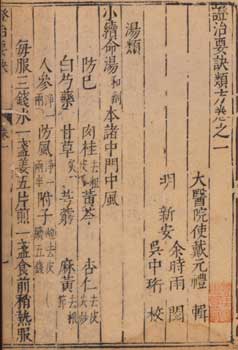 證治要訣類方卷之一
大醫院使戴元禮 輯
明 新安 余時雨 閱
吳中珩 校
湯類
小續命湯 和劑 本諸中門中風
防巳 肉桂 去粗皮 黃芩 杏仁 去皮
白芍藥 甘草 芎藭 麻黃 去根
人參 防風 附子
每服三錢水一盞姜五片煎一盞食前稍熱服